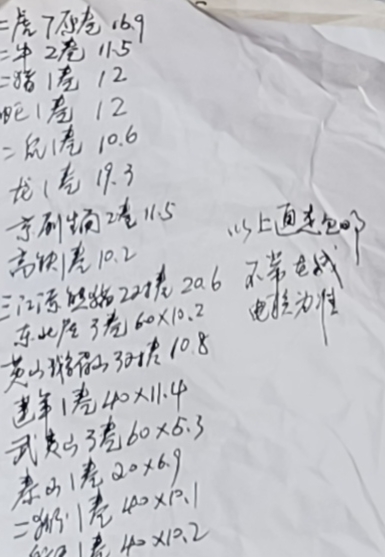 二虎7原卷 16.9
二牛2卷 11.5
二猪1卷 12
蛇1卷 12
二鼠1卷 10.6
龙1卷 19.3
京剧生角2卷 11.5
高铁1卷 10.2
三江源熊猫22对卷 20.6
东北虎3卷 60×10.2
黄山 3对卷 10.8
建军1卷 40×11.4
武夷山3卷 60×5.3
泰山1卷 20×6.9
二 1卷 40×10.1
1卷 40×10.2
以上通走包邮
不带电联
电联为准